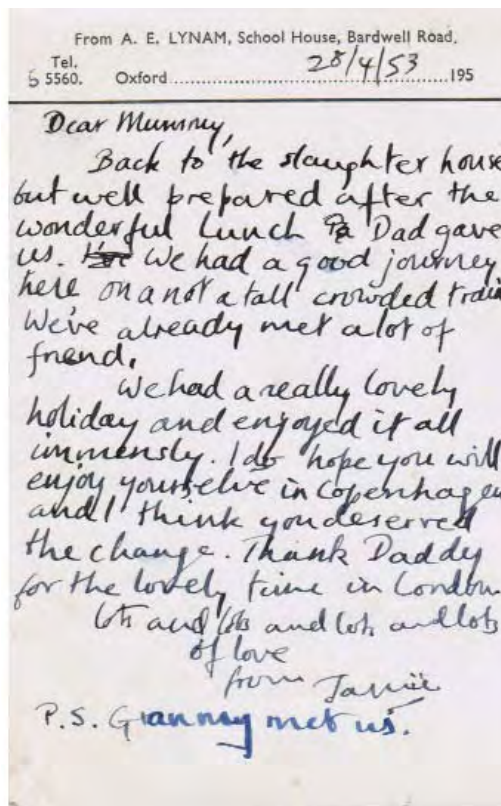 From A. E. LYNAM, School House, Bardwell Road,
Tel.
5 5560. Oxford 28/4/53 195
Dear Mummy,
Back to the slaughter house
but well prepared after the
wonderful Lunch Dad gave
us. we had a good journey
here on a not a tall crowded train
We've already met a lot of
friend.
We had a really lovely
holiday and enjoyed it all
immensly. I do hope you will
enjoy yourselve in Copenhagen
and I think you deserved
the change. Thank Daddy
for the lovely time in London
lots and lots and lots and lots
of love
from Jamie
P.S. Granny met us.